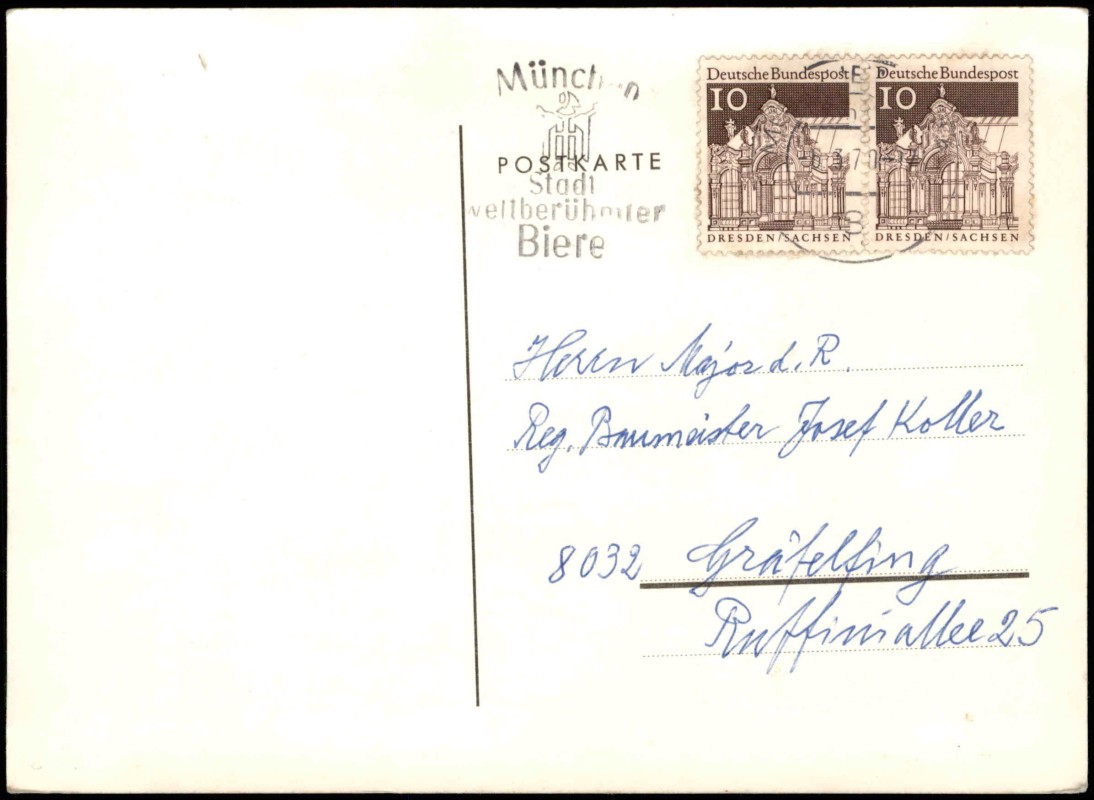 München
POSTKARTE
Stadt
weltberühmter
Biere
Deutsche Bundespost
10
DRESDEN/SACHSEN
Deutsche Bundespost
10
DRESDEN/SACHSEN
Herrn Major d. R.
Reg. Baumeister Josef Koller
8032 Gräfelfing
Ruffiniallee 25